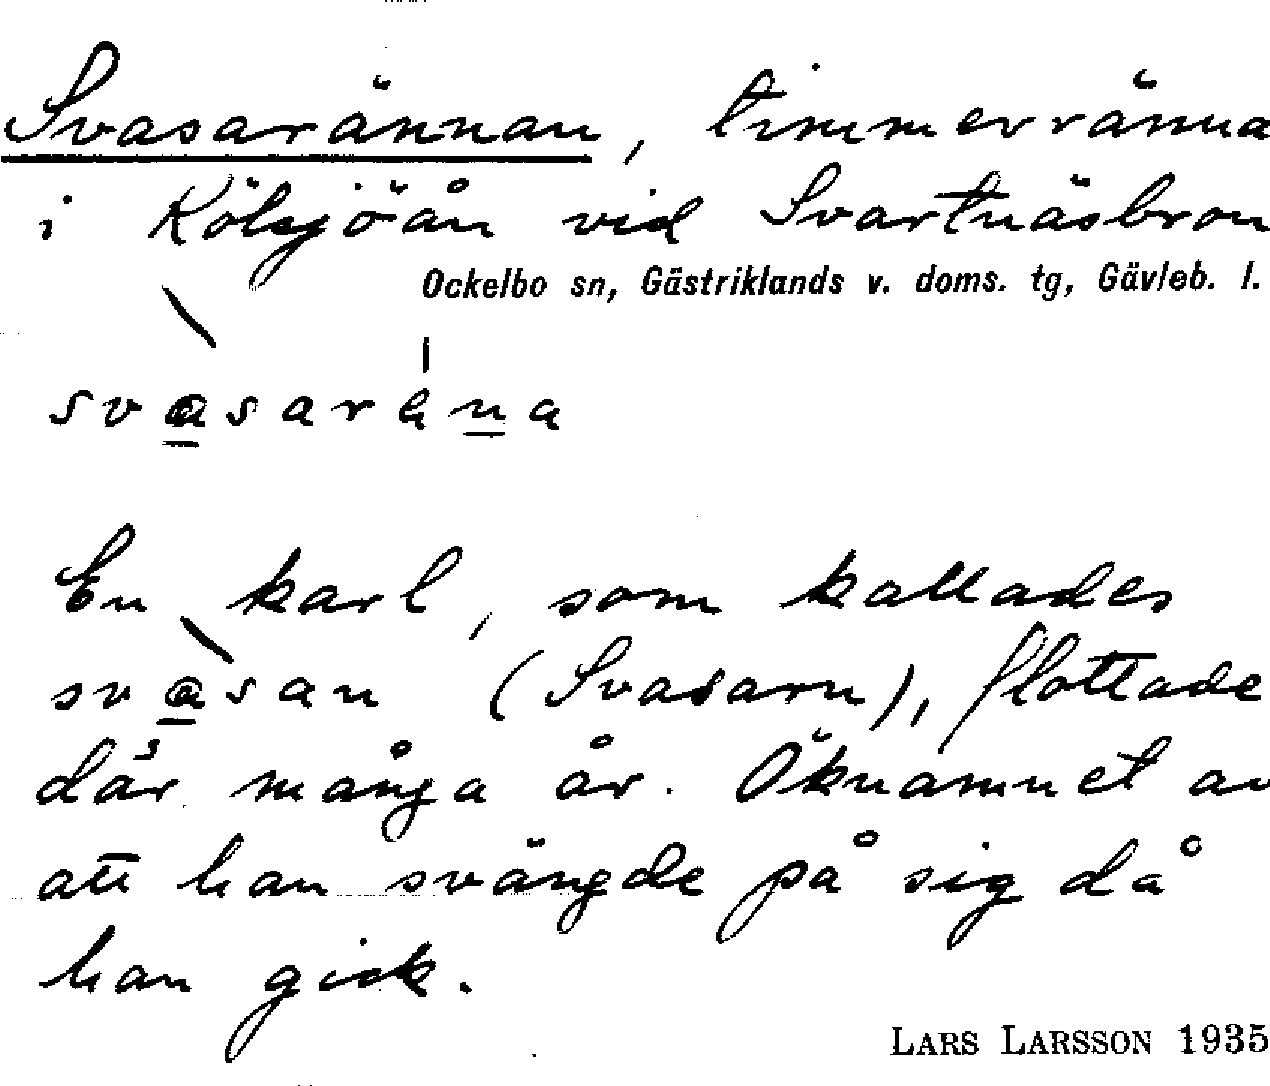 Svasarännan, timmerränna
i Kölsjöån vid Svartnäsbron
Ockelbo sn, Gästriklands v. doms. tg, Gävleb. l.
svasarana
En karl, som kallades
svasan (Svasarn), flottade
där många år. Öknamnet av
att han svängde på sig då
han gick.
LARS LARSSON 1935